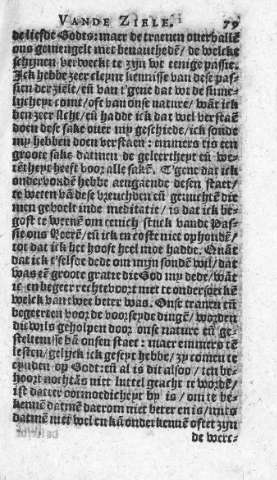 VANDE ZIELE. 79
de liefde Godts: maer de tranen overhallē
ons gemengelt met benautheden/ de welcke
schijnen verweckt te zijn wt eenige passie.
Ick hebbe zeer cleyne kennisse van dese pas-
sien der ziele/ eñ van t'gene dat wt de sinne-
lijcheyt comt/ oft van onse nature/ wāt ick
ben zeer slecht/ eñ hadde ick dat wel verstaē
doen dese sake over my geschiede/ ick soude
my hebben doen verstaen: immers tis een
groote sake datmen de geleertheyt eñ we-
tētheyt heeft voor alle sakē. T'gene dat ick
ondervondē hebbe aengaende desen staet/
te weten vā dese vreuchden eñ genuchtē die
men gevoelt inde meditatie/ is dat ick be-
gost te weenē om eenich stuck vande Pas-
sie ons Heerē/ eñ ick en coste niet ophoudē/
tot dat ick het hooft heel inde hadde. Eñ āst
dat ick t'selfve dede om mijn sondē wil/ dat
was eē groote gratie die God my dede/ wāt
ic en begeer rechtevoort niet te ondersoeckē
welck van twee beter was. Onse tranen eñ
begeerten voor de voorseyde dingē/ worden
dicwils geholpen door onse nature eñ ge-
steltenisse vā onsen staet: maer emmers tē
lesten/ gelijck ick geseyt hebbe/ zy comen te
eynden op Godt: eñ al is dit alsoo/ ten be-
hoort nochtās niet luttel geacht te wordē/
ist datter ootmoedicheyt by is/ om te be-
kennē datmē daerom niet beter en is/ mits
datmen niet wel en kā onderkennē oft zijn
de werc-